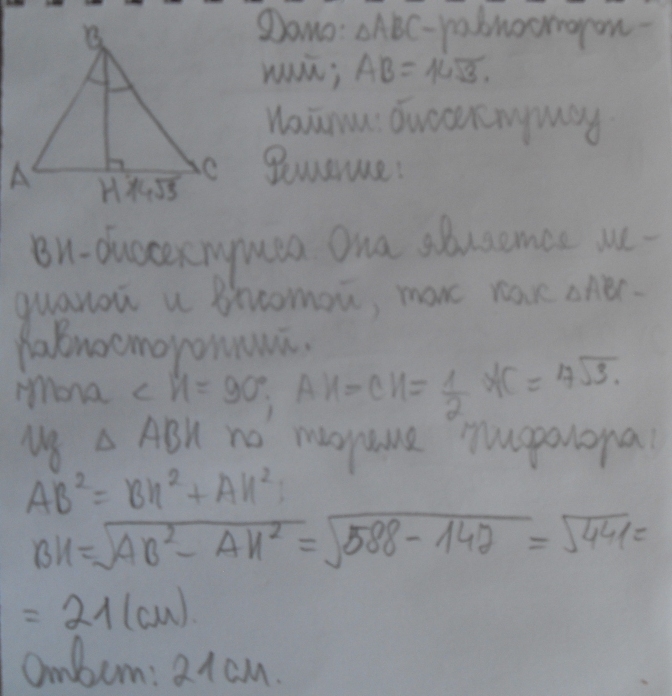 B
Дано: △ABC-равносторон-
ний; AB = 14√3.
Найти: биссектрису.
A H 14√3 C
Решение:
BH-биссектриса. Она является ме-
дианой и высотой, так как △ABC-
равносторонний.
Тога < H = 90°; AH = CH = 1/2 AC = 7√3.
Из △ ABH по теореме Пифагора:
AB² = BH² + AH²;
BH = √AB² - AH² = √588 - 147 = √441 =
= 21 (см).
Ответ: 21 см.